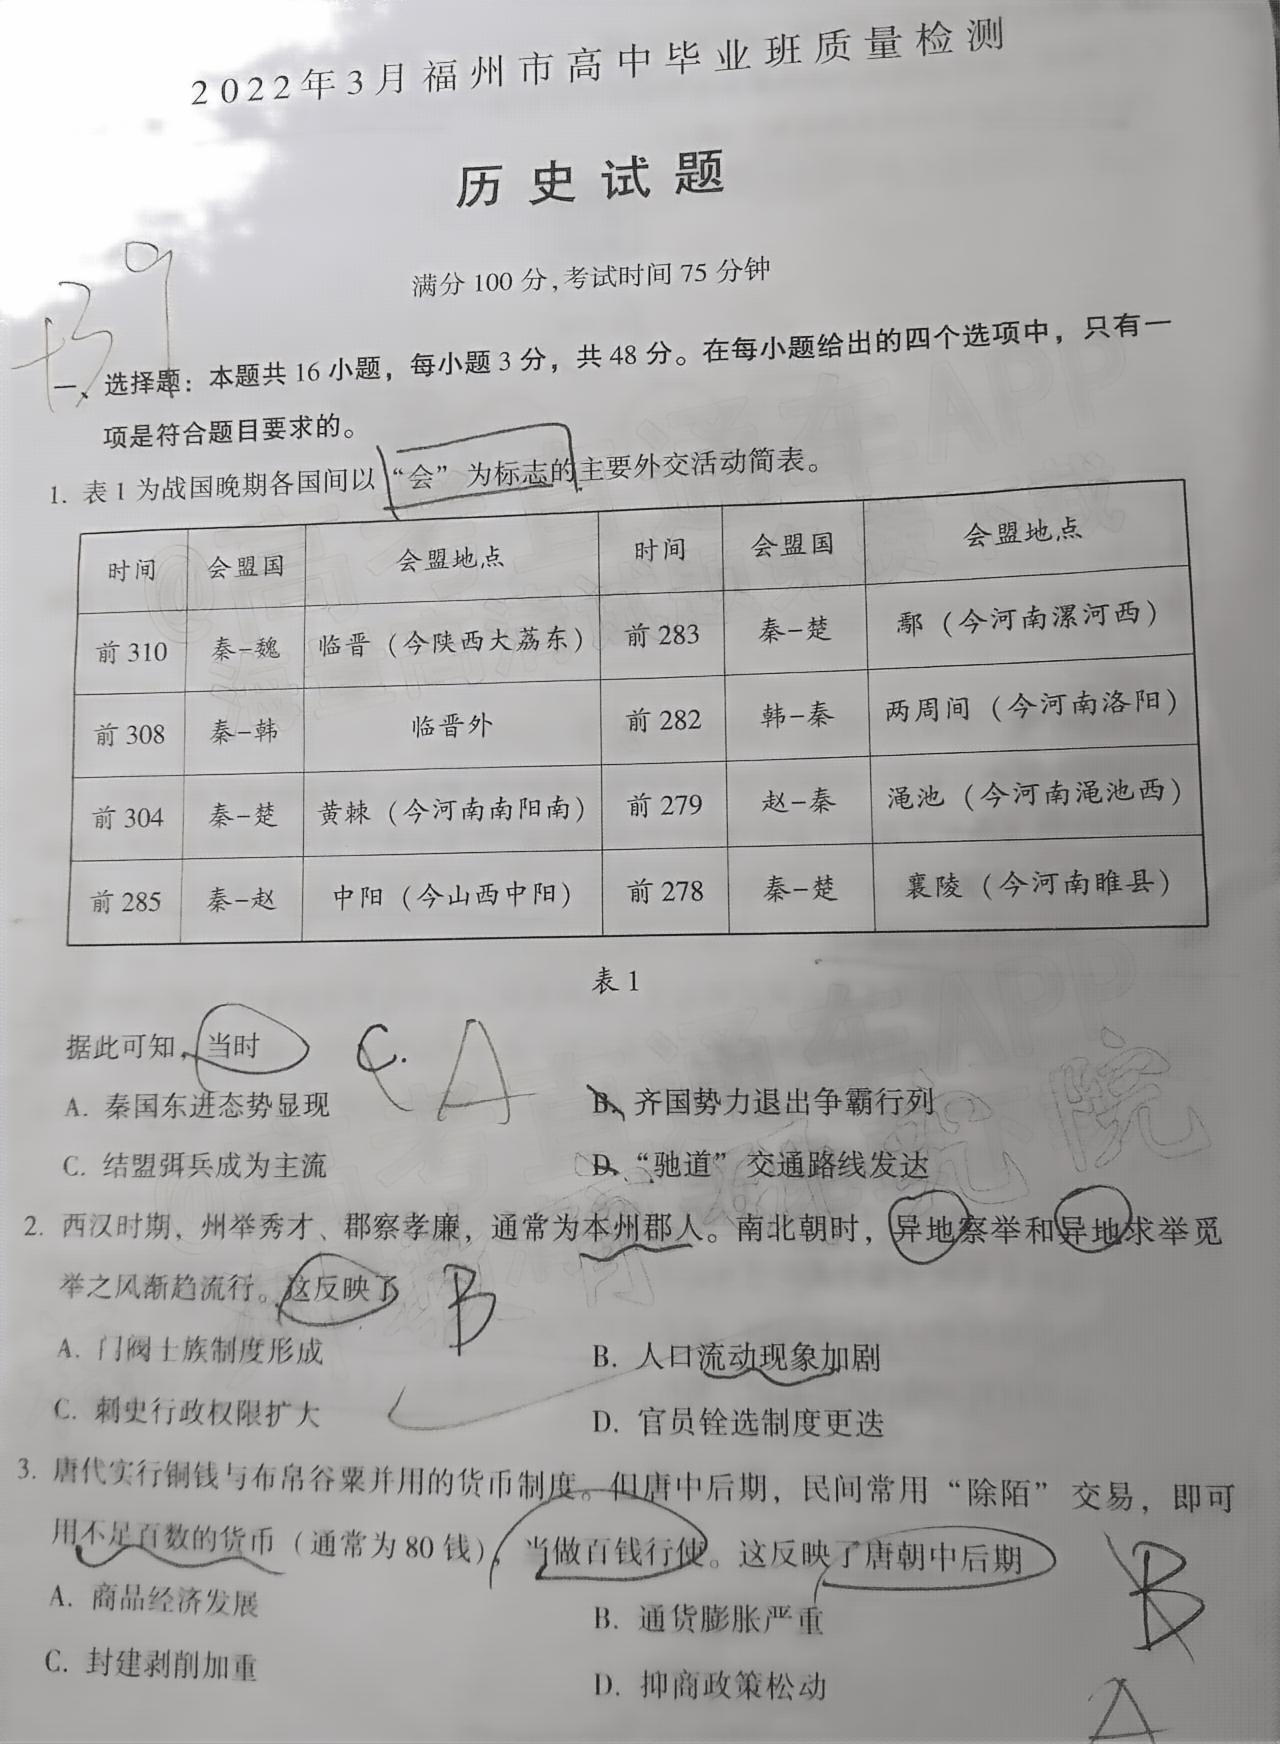 2022年3月福州市高中毕业班质量检测
历史试题
满分100分,考试时间75分钟
+39
一、选择题：本题共16小题，每小题3分，共48分。在每小题给出的四个选项中，只有一
项是符合题目要求的。
1. 表1为战国晚期各国间以“会”为标志的主要外交活动简表。
时间 会盟国 会盟地点 时间 会盟国 会盟地点
前310 秦-魏 临晋（今陕西大荔东） 前283 秦-楚 鄢（今河南漯河西）
前308 秦-韩 临晋外 前282 韩-秦 两周间（今河南洛阳）
前304 秦-楚 黄棘（今河南南阳南） 前279 赵-秦 渑池（今河南渑池西）
前285 秦-赵 中阳（今山西中阳） 前278 秦-楚 襄陵（今河南睢县）
表1
据此可知，当时 C. A
A. 秦国东进态势显现 B. 齐国势力退出争霸行列
C. 结盟弭兵成为主流 D. “驰道”交通路线发达
2. 西汉时期，州举秀才、郡察孝廉，通常为本州郡人。南北朝时，异地察举和异地求举觅
举之风渐趋流行。这反映了 B
A. 门阀士族制度形成 B. 人口流动现象加剧
C. 刺史行政权限扩大 D. 官员铨选制度更迭
3. 唐代实行铜钱与布帛谷粟并用的货币制度。但唐中后期，民间常用“除陌”交易，即可
用不足百数的货币（通常为80钱），当做百钱行使。这反映了唐朝中后期
B
A. 商品经济发展 B. 通货膨胀严重
C. 封建剥削加重 D. 抑商政策松动
A